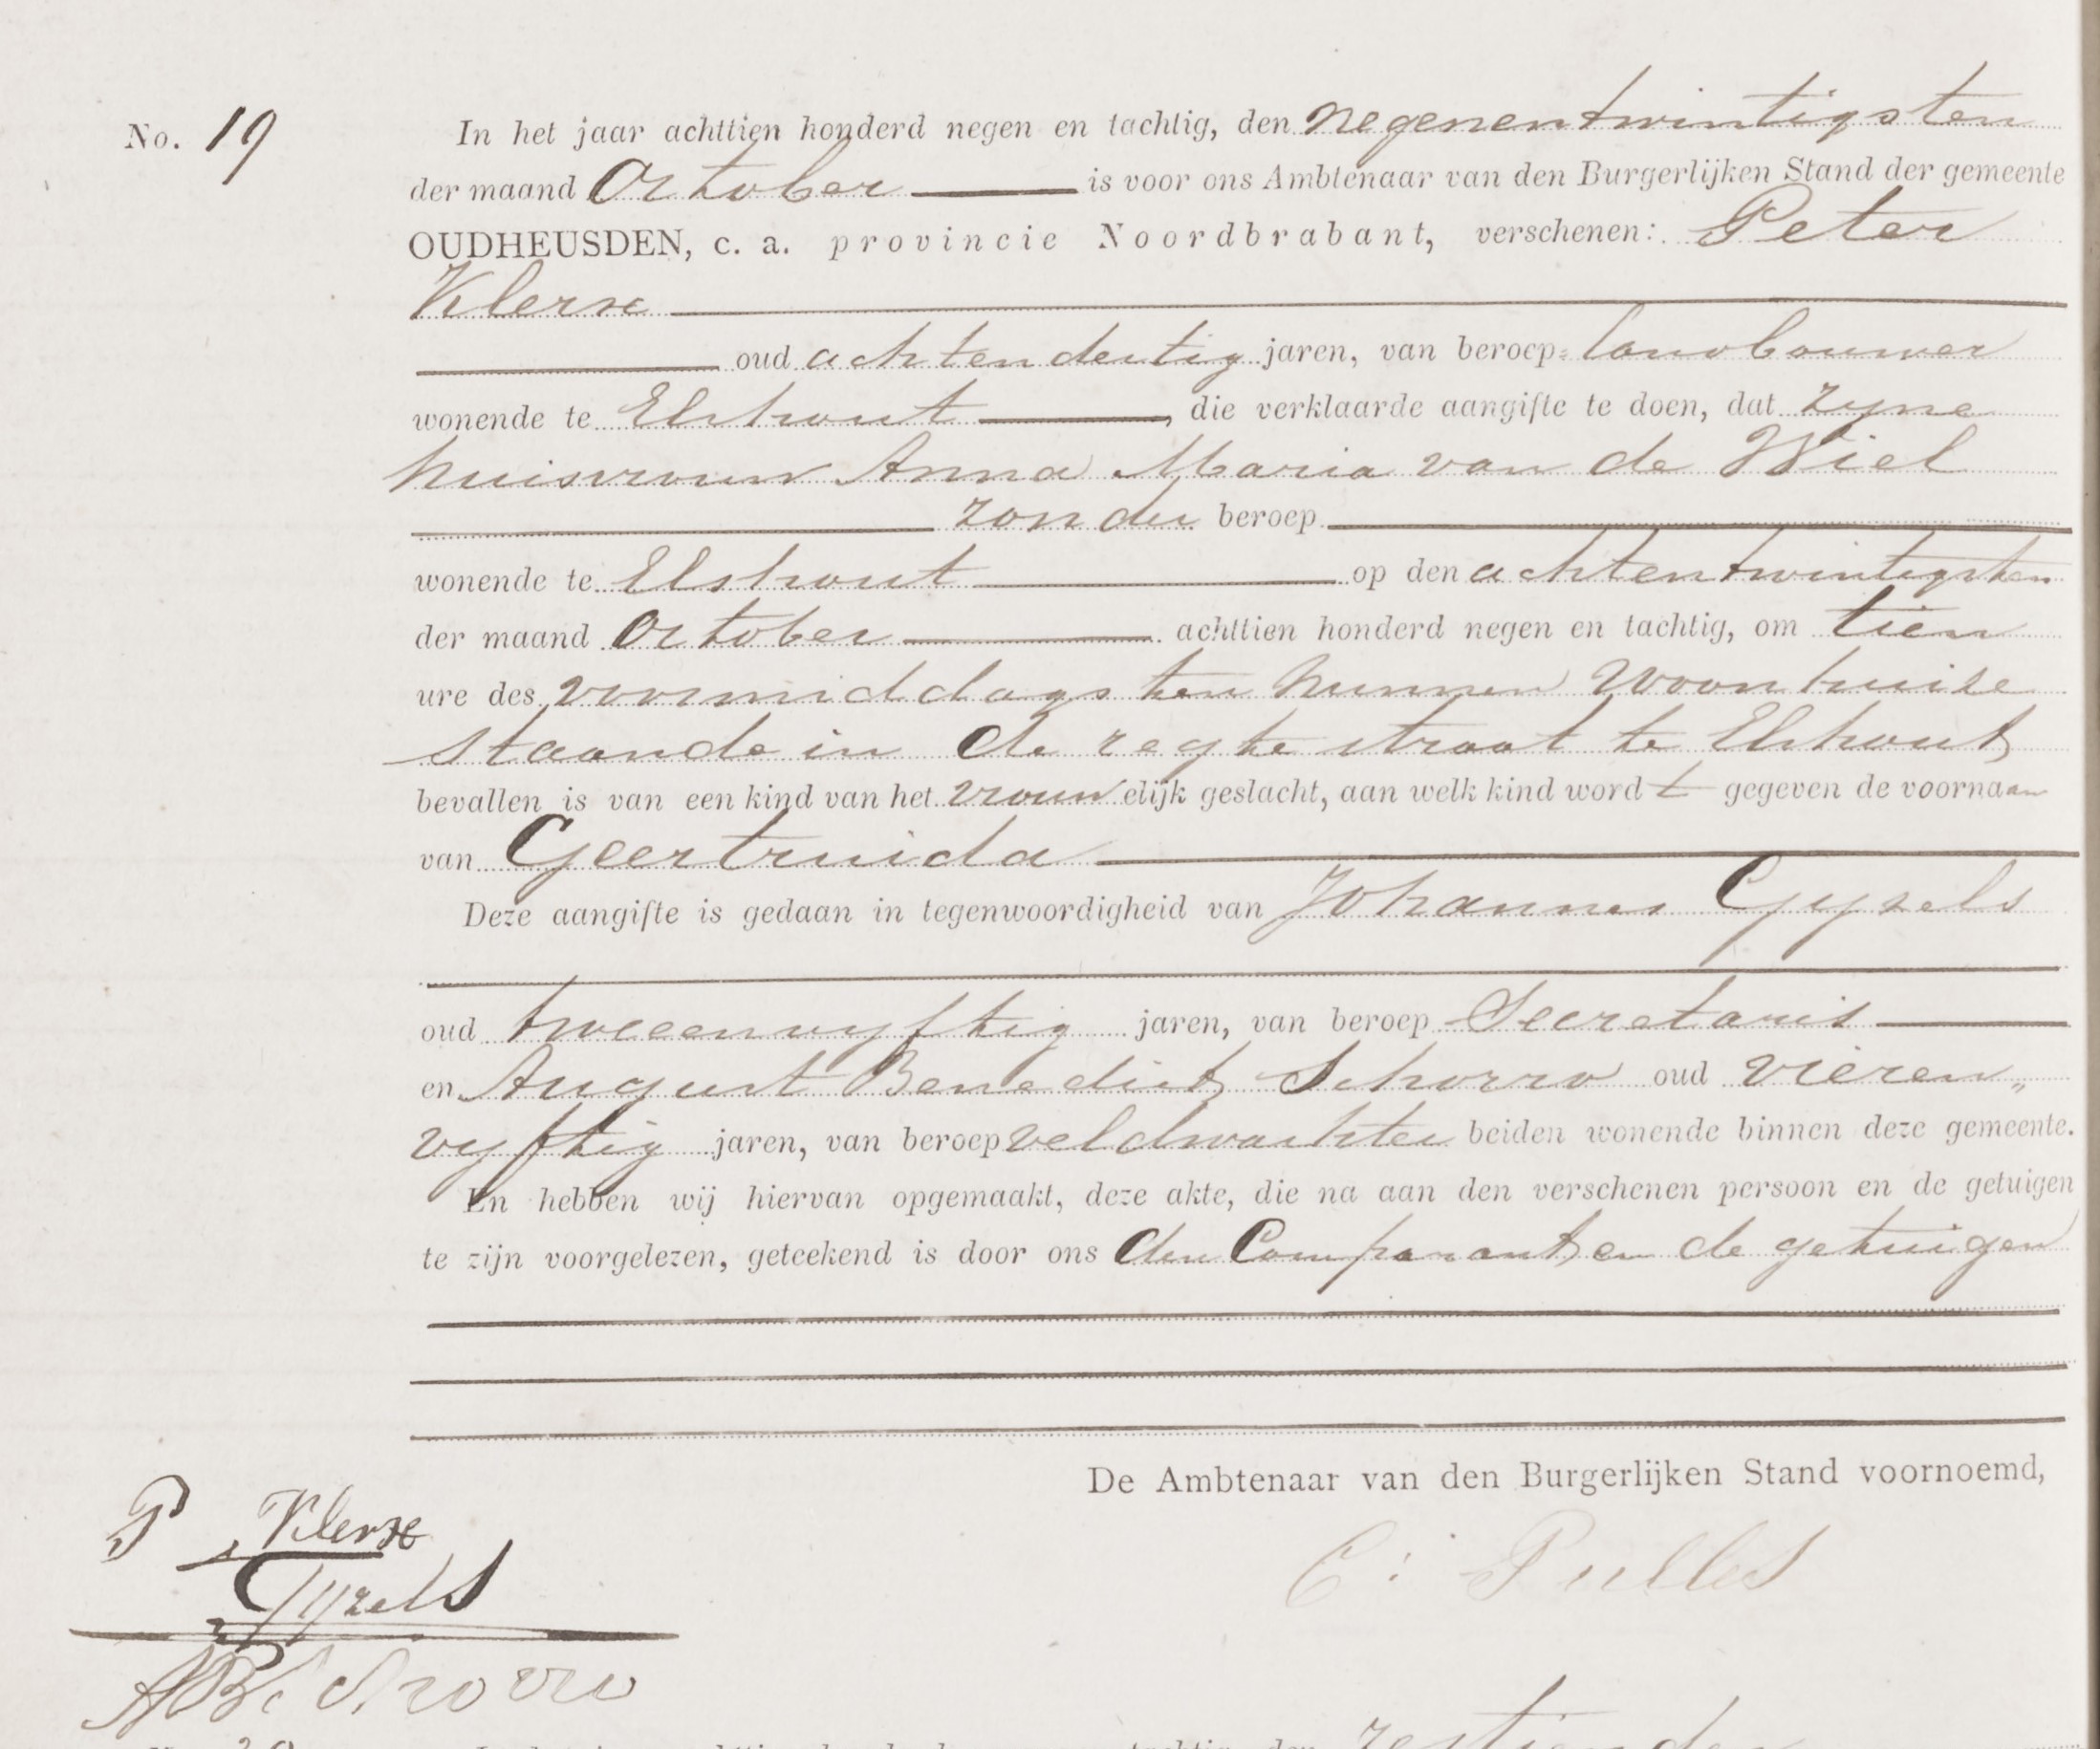 No. 19
In het jaar achttien honderd negen en tachtig, den negenentwintigsten
der maand October is voor ons Ambtenaar van den Burgerlijken Stand der gemeente
OUDHEUSDEN, c. a. provincie Noordbrabant, verschenen: Peter
Klerx
oud achtendertig jaren, van beroep: landbouwer
wonende te Elshout, die verklaarde aangifte te doen, dat zyne
huisvrouw Anna Maria van de Wiel
zonder beroep
wonende te Elshout op den achtentwintigsten
der maand October achttien honderd negen en tachtig, om tien
ure des voormiddags ten hunnen woonhuize
staande in de regte straat te Elshout
bevallen is van een kind van het vrouwelijk geslacht, aan welk kind wordt gegeven de voornaam
van Geertruida
Deze aangifte is gedaan in tegenwoordigheid van Johannes Gyzels
oud tweeenvyftig jaren, van beroep Secretaris
en August Benedict Schorro oud vieren„
vyftig jaren, van beroep veldwachter beiden wonende binnen deze gemeente.
En hebben wij hiervan opgemaakt, deze akte, die na aan den verschenen persoon en de getuigen
te zijn voorgelezen, geteekend is door ons den Comparant en de getuigen
De Ambtenaar van den Burgerlijken Stand voornoemd,
P Klerx
C: Pulles
Gyzels
AB Schorro
zestienden